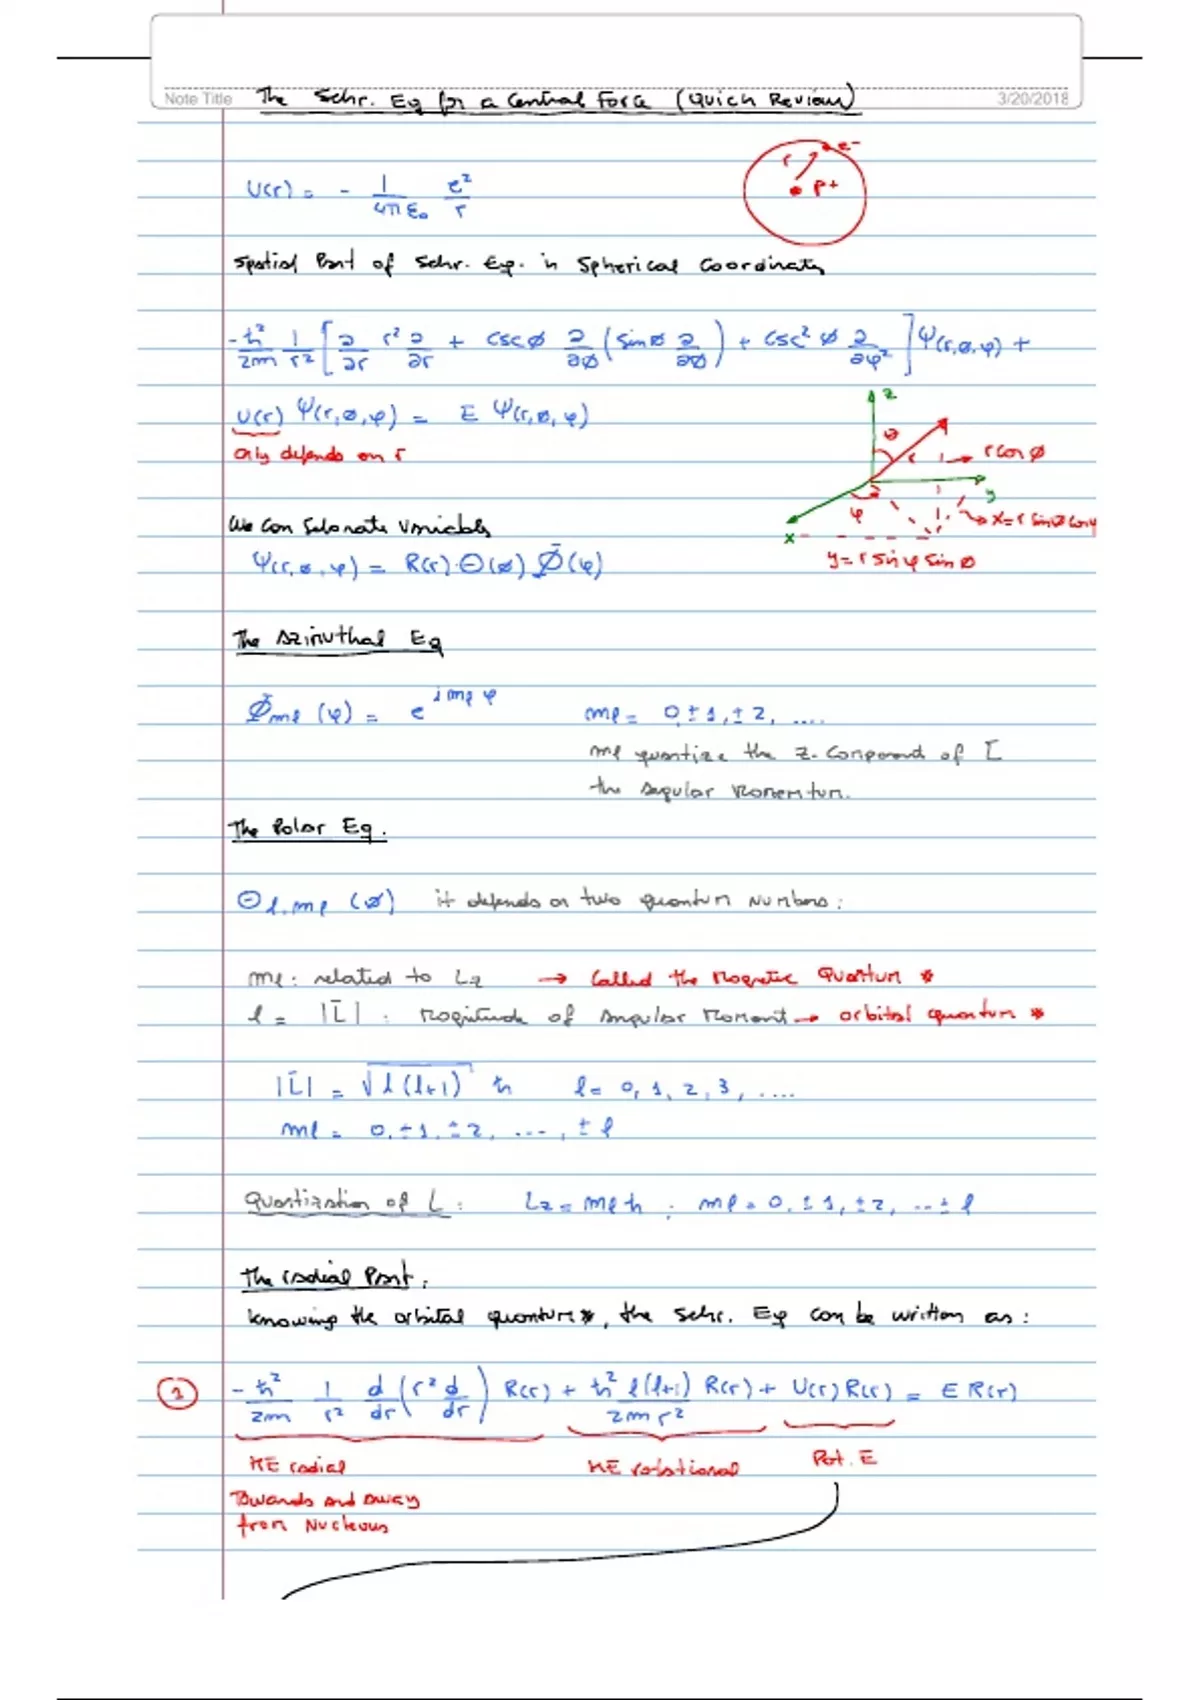 Note Title The Schr. Eq for a Central Force (Quick Review) 3/20/2018
r e-
p+
U(r) = - 1/4πε₀ e²/r
Spatial Part of Schr. Eq. in Spherical Coordinates
-ħ²/2m 1/r² [∂/∂r r² ∂/∂r + cscθ ∂/∂θ (sinθ ∂/∂θ) + csc²θ ∂/∂φ²] Ψ(r,θ,φ) +
U(r) Ψ(r,θ,φ) = E Ψ(r,θ,φ)
only depends on r
z
θ r → r cosθ
y
φ → x = r sinθ cosφ
x
y = r sinφ sinθ
We can separate variables
Ψ(r,θ,φ) = R(r)·Θ(θ) Φ(φ)
The Azimuthal Eq
Φmℓ (φ) = e^imℓφ mℓ = 0, ±1, ±2, ....
mℓ quantize the z-component of L
the angular momentum.
The Polar Eq.
Θℓ,mℓ (θ) it depends on two quantum numbers:
mℓ: related to Lz → Called the Magnetic Quantum *
ℓ = |L̄| : Magnitude of Angular Moment → orbital quantum *
|L̄| = √ℓ(ℓ+1) ħ ℓ = 0, 1, 2, 3, ....
mℓ = 0, ±1, ±2, ..., ±ℓ
Quantization of L: Lz = mℓ ħ ; mℓ = 0, ±1, ±2, ..± ℓ
The radial Part.
Knowing the orbital quantum *, the Schr. Eq can be written as:
1 -ħ²/2m 1/r² d/dr (r² d/dr) R(r) + ħ² ℓ(ℓ+1)/2mr² R(r) + U(r) R(r) = E R(r)
KE radial KE rotational Pot. E
Towards and away
from Nucleous